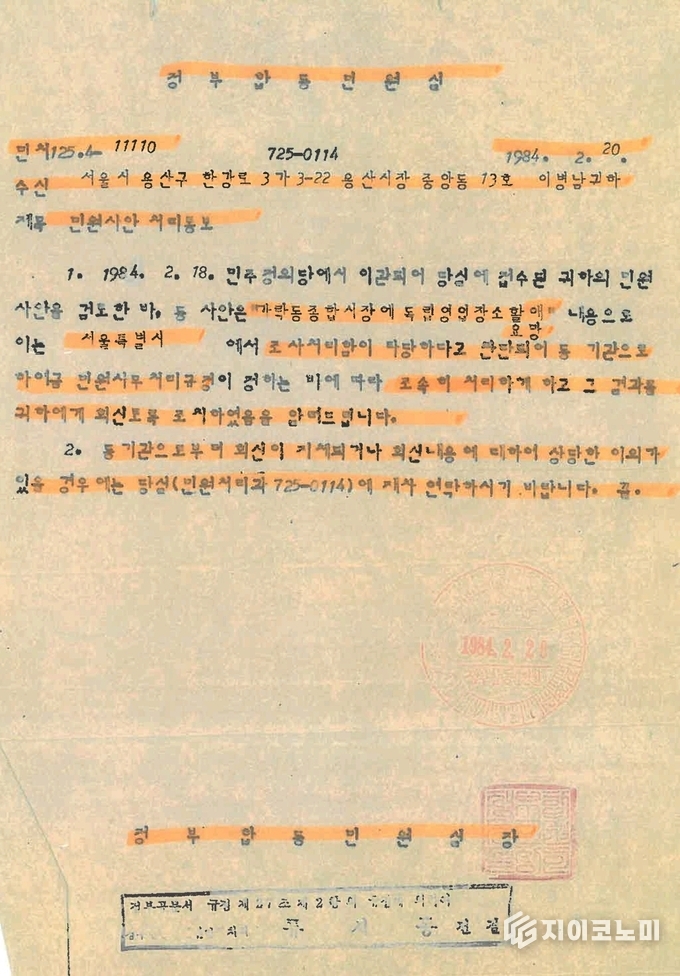 정 부 합 동 민 원 실
민처125.4- 11110 725-0114 1984. 2. 20.
수신 서울시 용산구 한강로 3가 3-22 용산시장 중앙동 13호 이병남귀하
제목 민원사안 처리통보
1. 1984. 2. 18. 민주정의당에서 이관되어 당실에 접수된 귀하의 민원
사안을 검토한 바, 동 사안은 "가락동종합시장에 독립영업장소할애" 내용으로
요망
이는 서울특별시 에서 조사처리함이 타당하다고 판단되어 동 기관으로
하여금 민원사무처리규정이 정하는 바에 따라 조속히 처리하게 하고 그 결과를
귀하에게 회신토록 조치하였음을 알려드립니다.
2. 동기관으로부터 회신이 지체되거나 회신내용에 대하여 상당한 이의가
있을 경우에는 당실(민원처리과 725-0114)에 재차 연락하시기 바랍니다. 끝.
1984. 2. 2
정 부 합 동 민 원 실 장
정부공문서 규정 제27조제2항의
전결
지이코노미